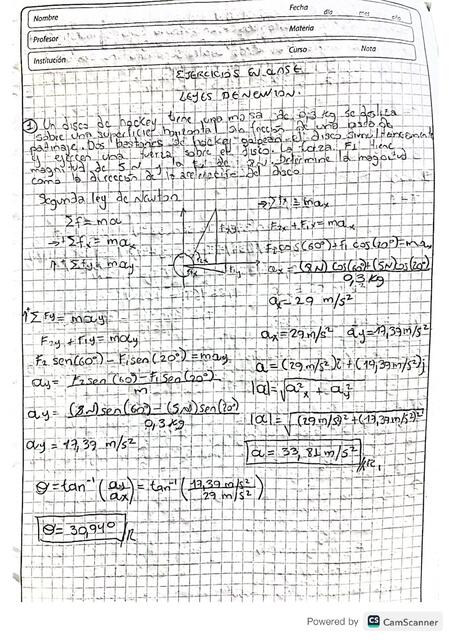 Nombre
Fecha día mes año
Profesor
Materia
Institución
Curso
Nota
EJERCICIOS EN CLASE
LEYES DE NEWTON.
① Un disco de hockey tiene una masa de 0,3 kg se desliza
sobre una superficie horizontal sin fricción de una pista de
patinaje. Dos bastones de hockey golpean el disco simultaneamente
y ejercen una fuerza sobre el disco. La fuerza F1 tiene
magnitud de 5 N y la F2 de 8 N. Determine la magnitud
como la dirección de la aceleración del disco
Segunda ley de Newton
Σf = ma
→ Σfx = max
↑ Σfy = may
→ Σfx = max
F2x + F1x = max
F2 cos(60°) + F1 cos(20°) = max
ax = (8N) cos(60°) + (5N) cos(20°)
0,3 kg
ax = 29 m/s²
↑ Σ Fy = may
F2y + F1y = may
F2 sen(60°) - F1 sen(20°) = may
ay = F2 sen(60°) - F1 sen(20°)
m
ay = (8N) sen(60°) - (5N) sen(20°)
0,3 kg
ay = 17,39 m/s²
ax = 29 m/s² ay = 17,39 m/s²
a = (29 m/s²)i + (17,39 m/s²)j
|a| = √ax² + ay²
|a| = √(29 m/s²)² + (17,39 m/s²)²
a = 33,81 m/s² //R.
θ = tan⁻¹ (ay/ax) = tan⁻¹ (17,39 m/s² / 29 m/s²)
θ = 30,94° //R
Powered by CS CamScanner